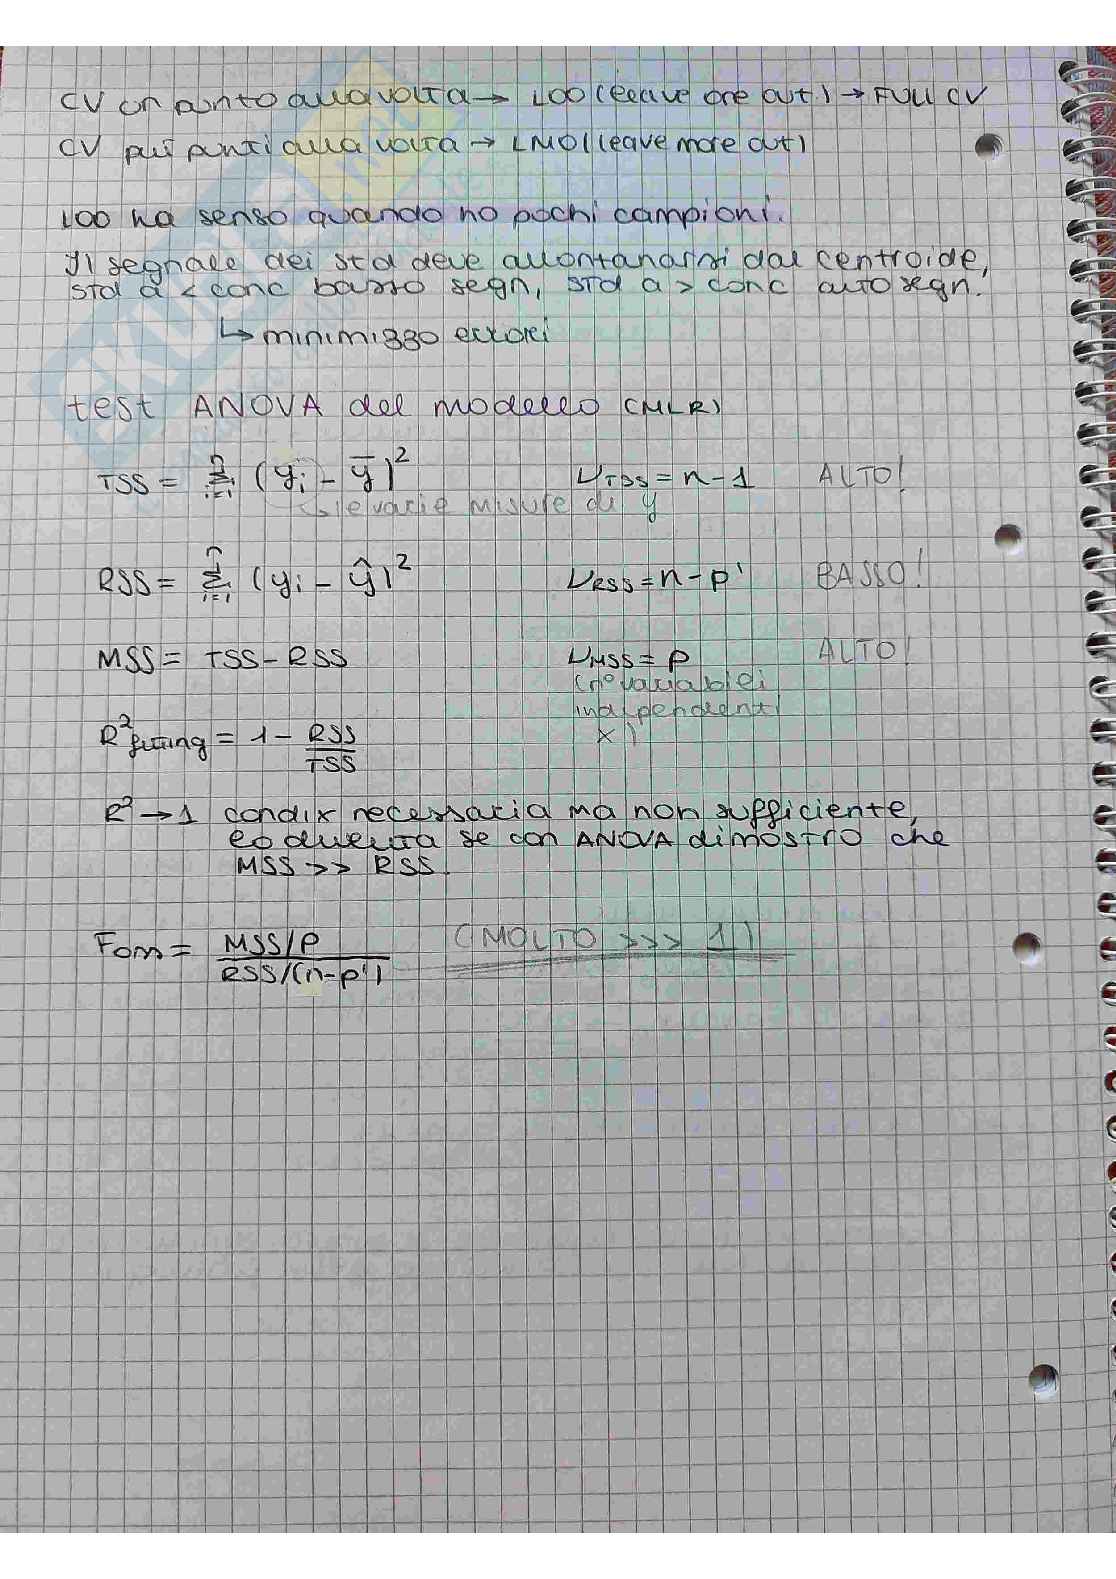 CV un punto alla volta → LOO (leave one out) → FULL CV
CV più punti alla volta → LMO (leave more out)
LOO ha senso quando ho pochi campioni.
Il segnale dei std deve allontanarsi dal centroide,
std a < conc basso segn, std a > conc alto segn.
↳ minimizzo errori
test ANOVA del modello (MLR)
TSS = Σ_{i=1}^{n} (y_i - ȳ)² ν_TSS = n - 1 ALTO!
↳ le varie misure di y
RSS = Σ_{i=1}^{n} (y_i - ŷ)² ν_RSS = n - p' BASSO!
MSS = TSS - RSS ν_MSS = p ALTO!
(n° variabili
indipendenti
x)
R²fitting = 1 - RSS/TSS
R² → 1 condix necessaria ma non sufficiente,
lo diventa se con ANOVA dimostro che
MSS >> RSS.
F = (MSS/p) / (RSS/(n-p')) (MOLTO >>> 1)